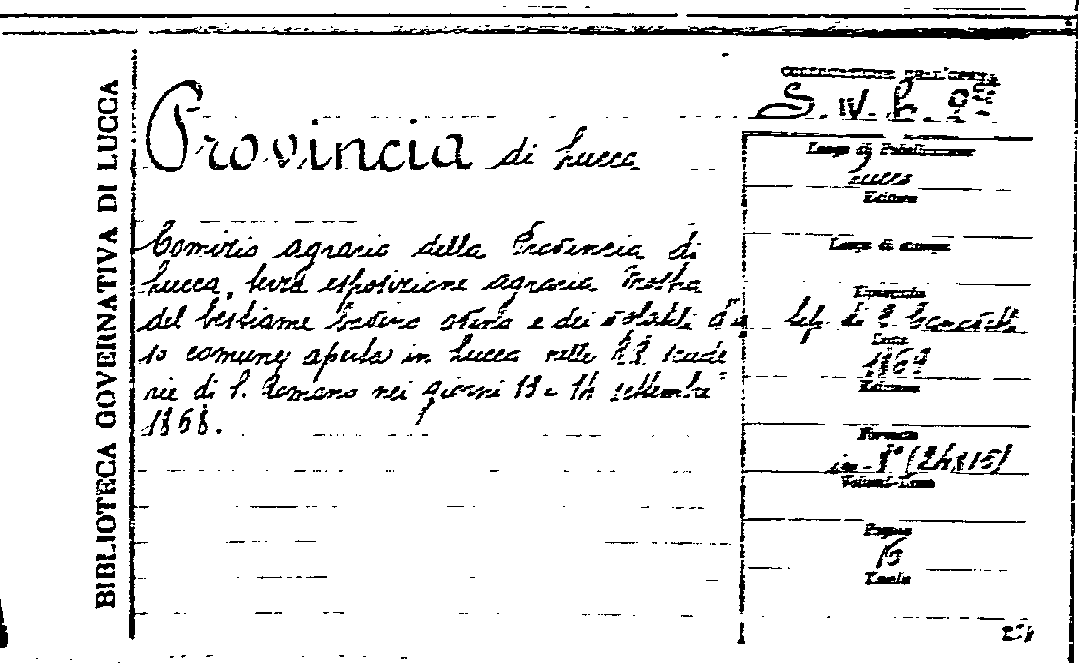 BIBLIOTECA GOVERNATIVA DI LUCCA
COLLOCAZIONE DELL'OPERA
Provincia di Lucca
Luogo di Pubblicazione
Lucca
Editore
Comizio agrario della Provincia di
Luogo di stampa
Lucca, terza esposizione agraria. Mostra
del bestiame bovino ovino e dei volatili da
Tip. di
comune aperta in Lucca nelle RR. scude
Data
1869
Edizione
rie di S. Romano nei giorni 13 e 14 settembre
1868.
Formato
in-8° (24x16)
Volumi-Tomo
Pagine
16
Tavole